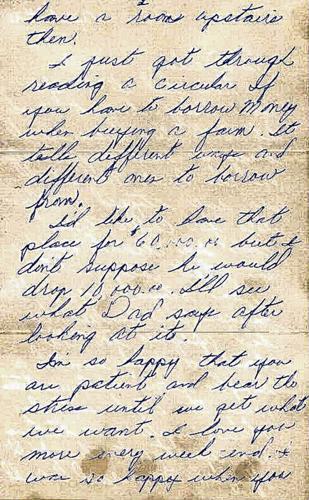 have a room upstairs
then.
I just got through
reading a circular if
you have to borrow money
when buying a farm. It
tells different ways and
different ones to borrow
from.
I'd like to have that
place for $60,000.00 but I
don't suppose he would
drop 10,000.00. I'll see
what Dad says after
looking at it.
I'm so happy that you
are patient and bear the
stress until we get what
we want. I love you
more every week end. I
was so happy when you